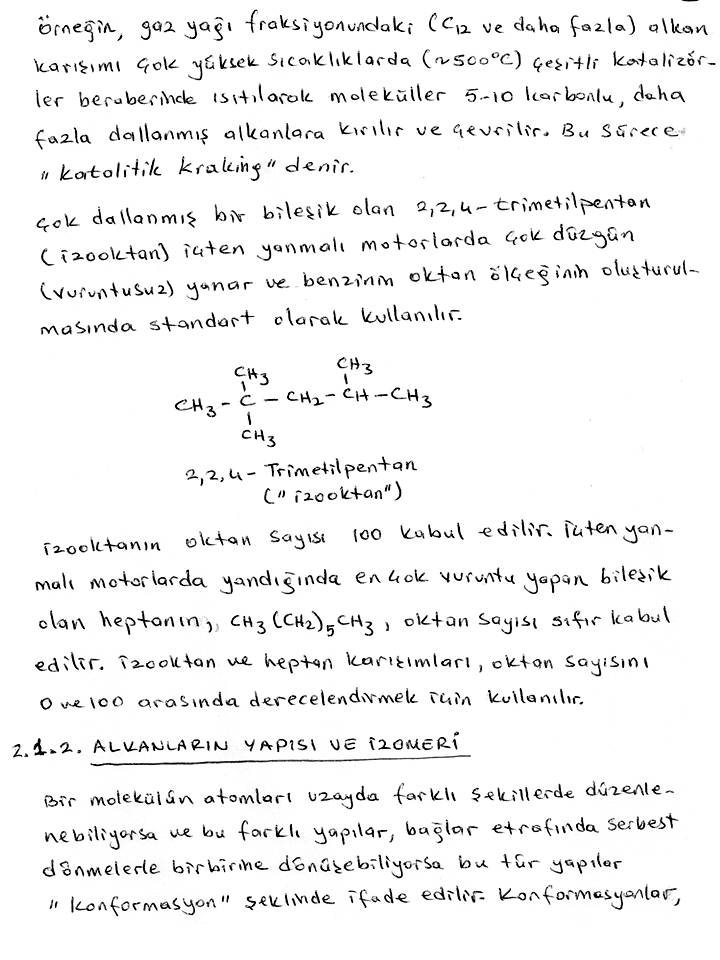 örneğin, gaz yağı fraksiyonundaki (C12 ve daha fazla) alkan
karışımı çok yüksek sıcaklıklarda (~500°C) çeşitli katalizör-
ler beraberinde ısıtılarak moleküller 5-10 karbonlu, daha
fazla dallanmış alkanlara kırılır ve çevrilir. Bu sürece
"katalitik kraking" denir.
Çok dallanmış bir bileşik olan 2,2,4-trimetilpentan
(izooktan) içten yanmalı motorlarda çok düzgün
(vuruntusuz) yanar ve benzinin oktan ölçeğinin oluşturul-
masında standart olarak kullanılır.
CH3 CH3
CH3 - C - CH2 - CH - CH3
CH3
2,2,4 - Trimetilpentan
("izooktan")
İzooktanın oktan sayısı 100 kabul edilir. İçten yan-
malı motorlarda yandığında en çok vuruntu yapan bileşik
olan heptanın, CH3(CH2)5CH3, oktan sayısı sıfır kabul
edilir. İzooktan ve heptan karışımları, oktan sayısını
0 ve 100 arasında derecelendirmek için kullanılır.
2.1.2. ALKANLARIN YAPISI VE İZOMERİ
Bir molekülün atomları uzayda farklı şekillerde düzenle-
nebiliyorsa ve bu farklı yapılar, bağlar etrafında serbest
dönmelerle birbirine dönüşebiliyorsa bu tür yapılar
"konformasyon" şeklinde ifade edilir. Konformasyonlar,